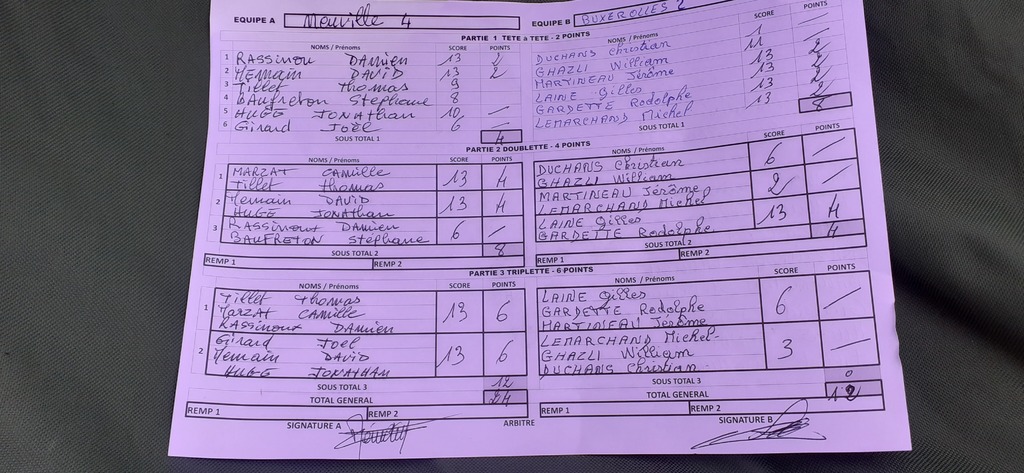 EQUIPE A Neuville 4 EQUIPE B BUXEROLLES 2
PARTIE 1 TETE à TETE - 2 POINTS
NOMS / Prénoms SCORE POINTS NOMS / Prénoms SCORE POINTS
1 RASSINOU DAMIEN 13 2 DUCHANS Christian 1 —
2 Memain DAVID 13 2 GHAZLI William 11 —
3 Tillet thomas 9 MARTINEAU Jérôme 13 2
4 BAUFRETON Stephane 8 LAINE Gilles 13 2
5 HUGE JONATHAN 10 — GARDETTE Rodolphe 13 2
6 Girard Joël 6 — LEMARCHAND Michel 13 2
SOUS TOTAL 1 4 SOUS TOTAL 1 8
PARTIE 2 DOUBLETTE - 4 POINTS
NOMS / Prénoms SCORE POINTS NOMS / Prénoms SCORE POINTS
1 MARZAT CAMILLE 13 4 DUCHANS Christian 6 —
Tillet thomas GHAZLI William
2 Memain DAVID 13 4 MARTINEAU Jérôme 2 —
HUGE JONATHAN LEMARCHAND Michel
3 RASSINOUX Damien 6 — LAINE Gilles 13 4
BAUFRETON Stéphane GARDETTE Rodolphe
SOUS TOTAL 2 8 SOUS TOTAL 2 4
REMP 1 REMP 2 REMP 1 REMP 2
PARTIE 3 TRIPLETTE - 6 POINTS
NOMS / Prénoms SCORE POINTS NOMS / Prénoms SCORE POINTS
1 Tillet thomas 13 6 LAINE Gilles 6 —
Marzat CAMILLE GARDETTE Rodolphe
RASSINOUX DAMIEN MARTINEAU Jérôme
2 Girard Joel 13 6 LEMARCHAND Michel 3 —
Memain DAVID GHAZLI William
HUGE JONATHAN DUCHANS Christian
SOUS TOTAL 3 12 SOUS TOTAL 3 0
TOTAL GENERAL 24 TOTAL GENERAL 12
REMP 1 REMP 2 REMP 1 REMP 2
SIGNATURE A ARBITRE SIGNATURE B